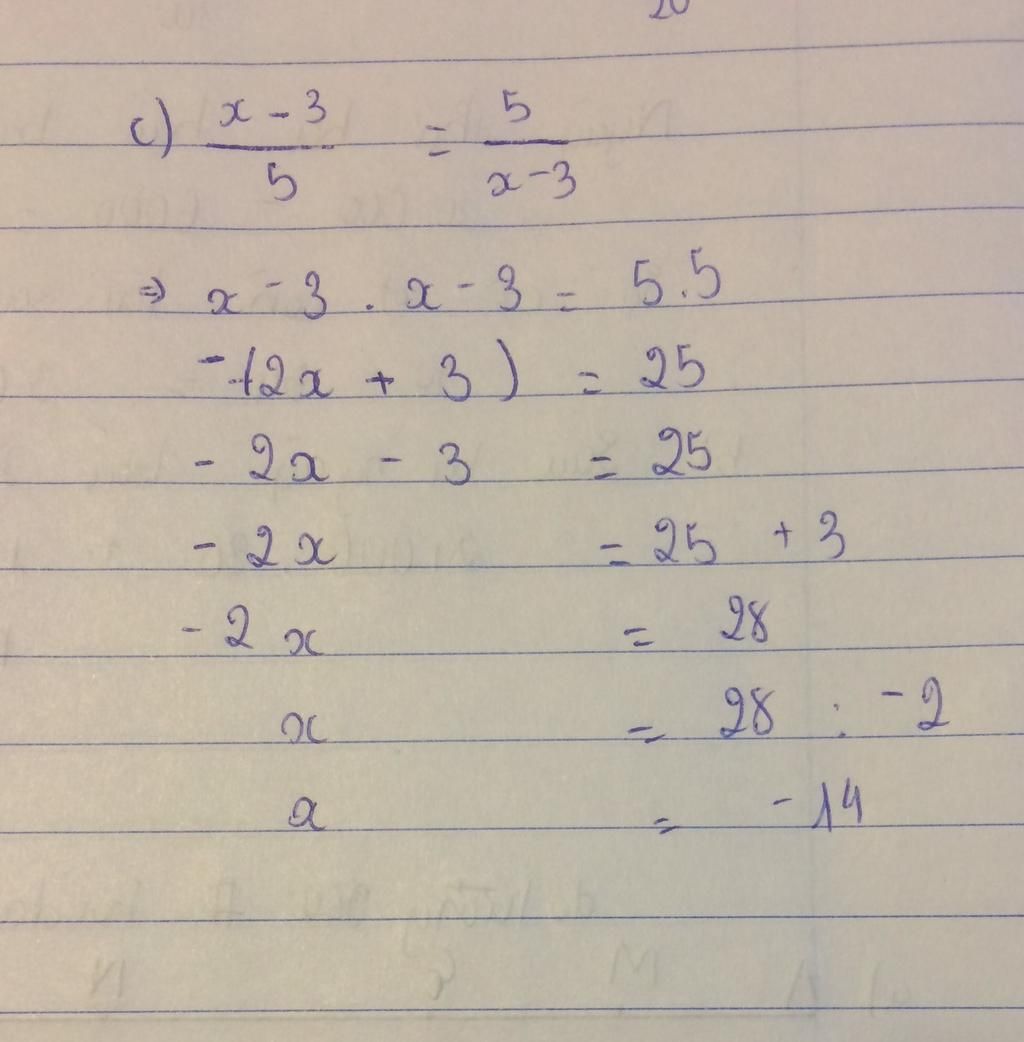 c) x - 3 / 5 = 5 / x - 3
⇒ x - 3 . x - 3 = 5.5
-(2x + 3) = 25
- 2x - 3 = 25
- 2x = 25 + 3
- 2x = 28
x = 28 : -2
x = -14